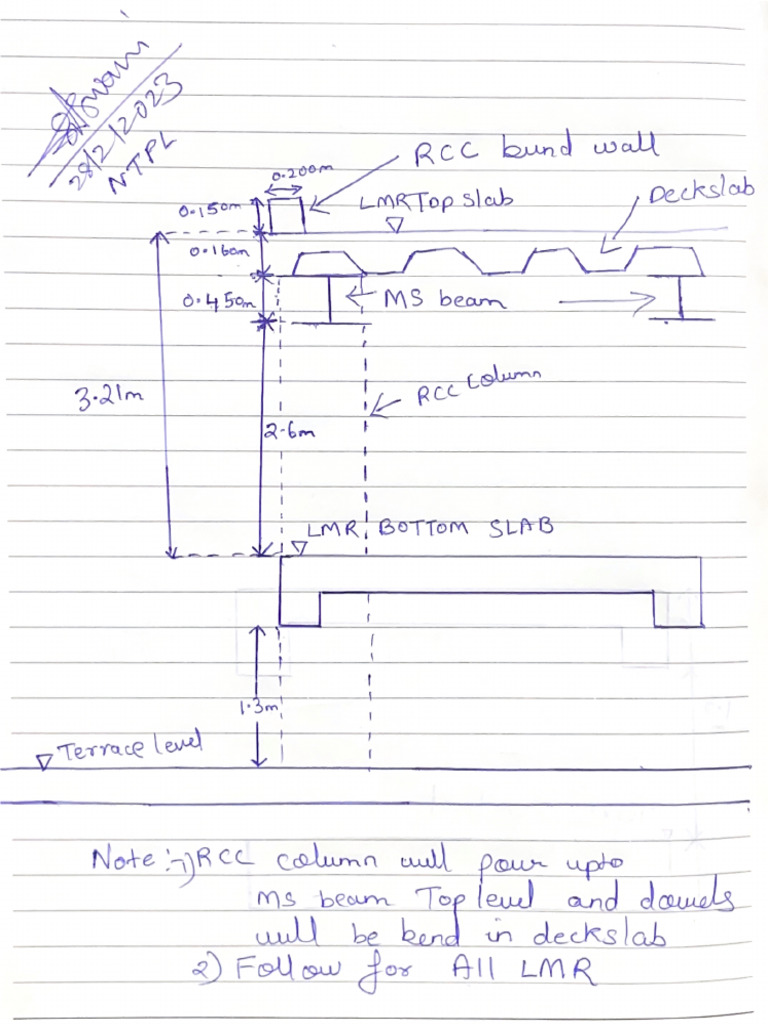 28/2/2023
NTPL
RCC bund wall
0.200m
Deckslab
0.150m
LMR Top slab
0.160m
0.450m
MS beam
RCC Column
3.21m
2.6m
LMR BOTTOM SLAB
1.3m
Terrace level
Note:- 1) RCC column will pour upto
MS beam Top level and dowels
will be bend in deckslab
2) Follow for All LMR